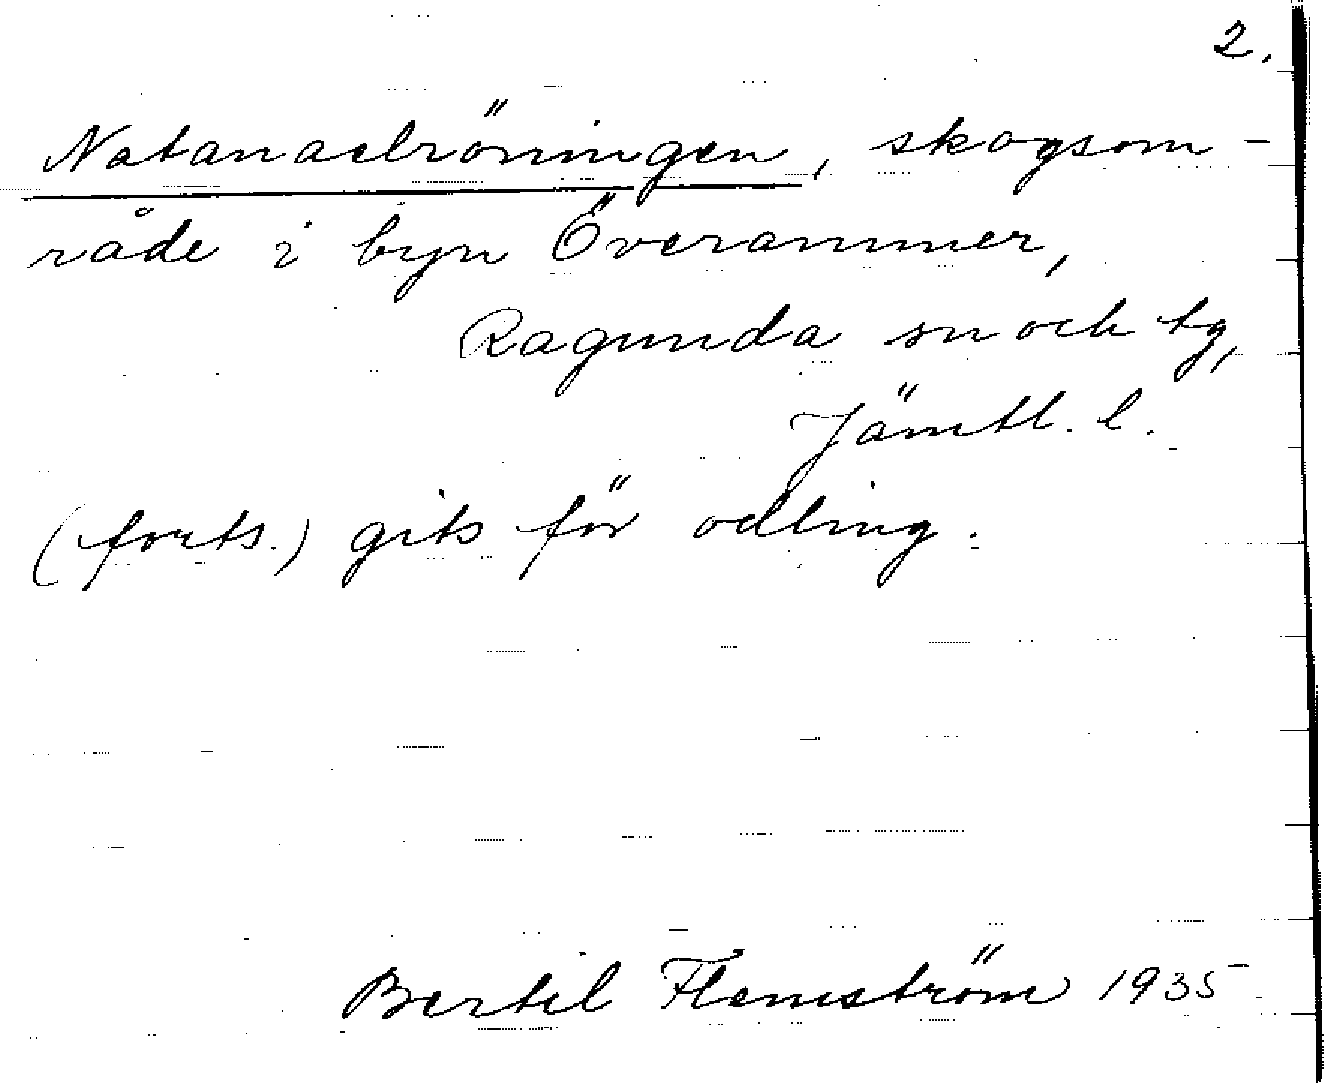 2.
Natanaelröningen, skogsom-
råde i byn Överammer,
Ragunda sn och tg,
Jämtl. l.
(forts.) gits för odling.
Bertil Flemström 1935